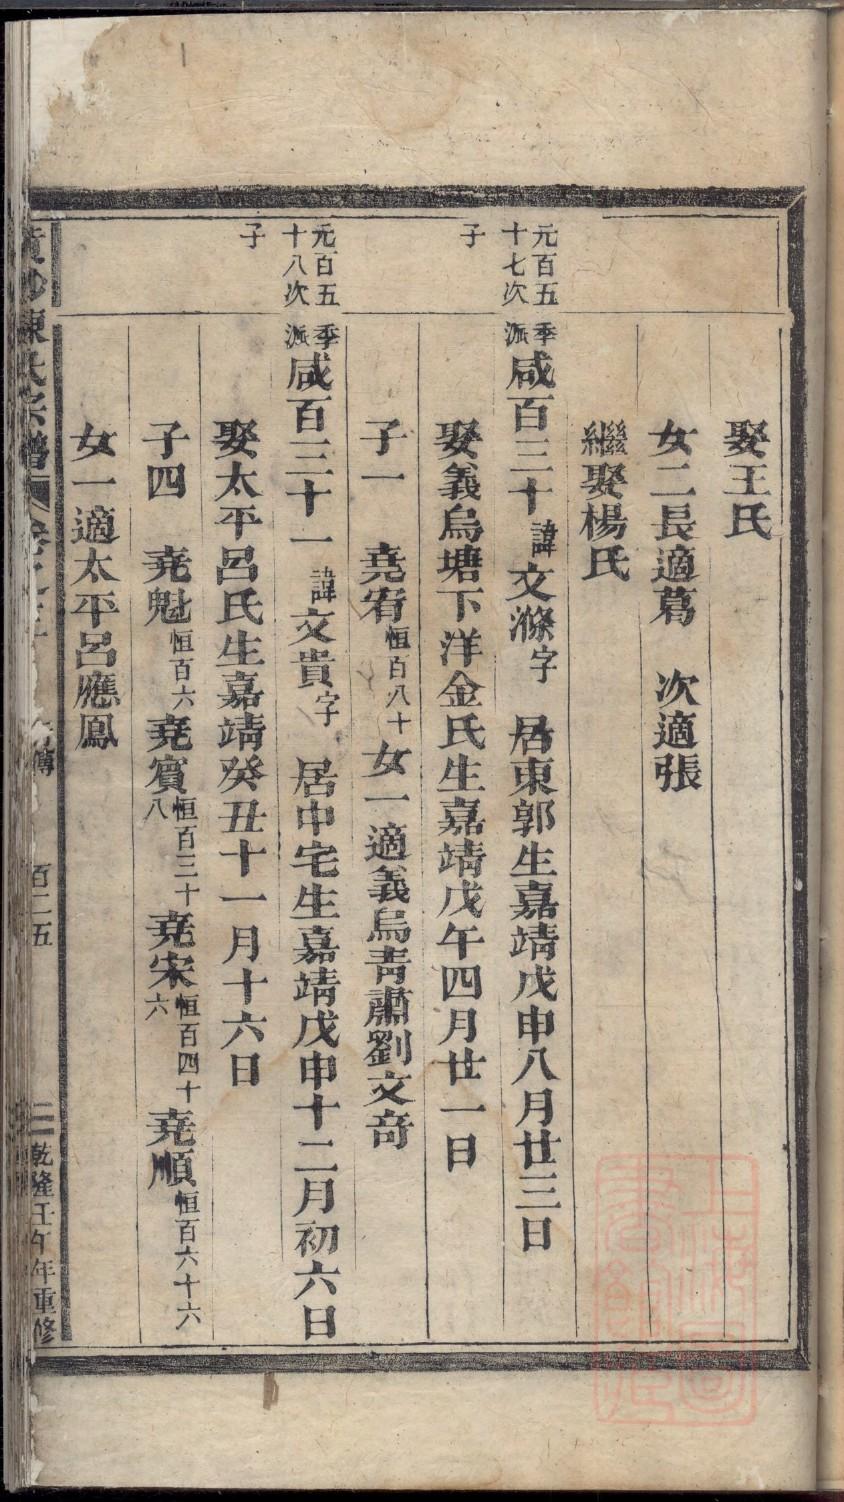 娶王氏
女二長適葛　次適張
繼娶楊氏
元百五十七次子
季派咸百三十諱文滌字　居東郭生嘉靖戊申八月廿三日
娶義烏塘下洋金氏生嘉靖戊午四月廿一日
子一　堯宥恒百八十女一適義烏青肅劉文奇
元百五十八次子
季派咸百三十一諱文貴字　居中宅生嘉靖戊申十二月初六日
娶太平呂氏生嘉靖癸丑十一月十六日
子四　堯魁恒百六堯賓恒百三十八堯宋恒百四十六堯順恒百六十六
女一適太平呂應鳳
陳氏宗譜　百二五　乾隆壬午年重修